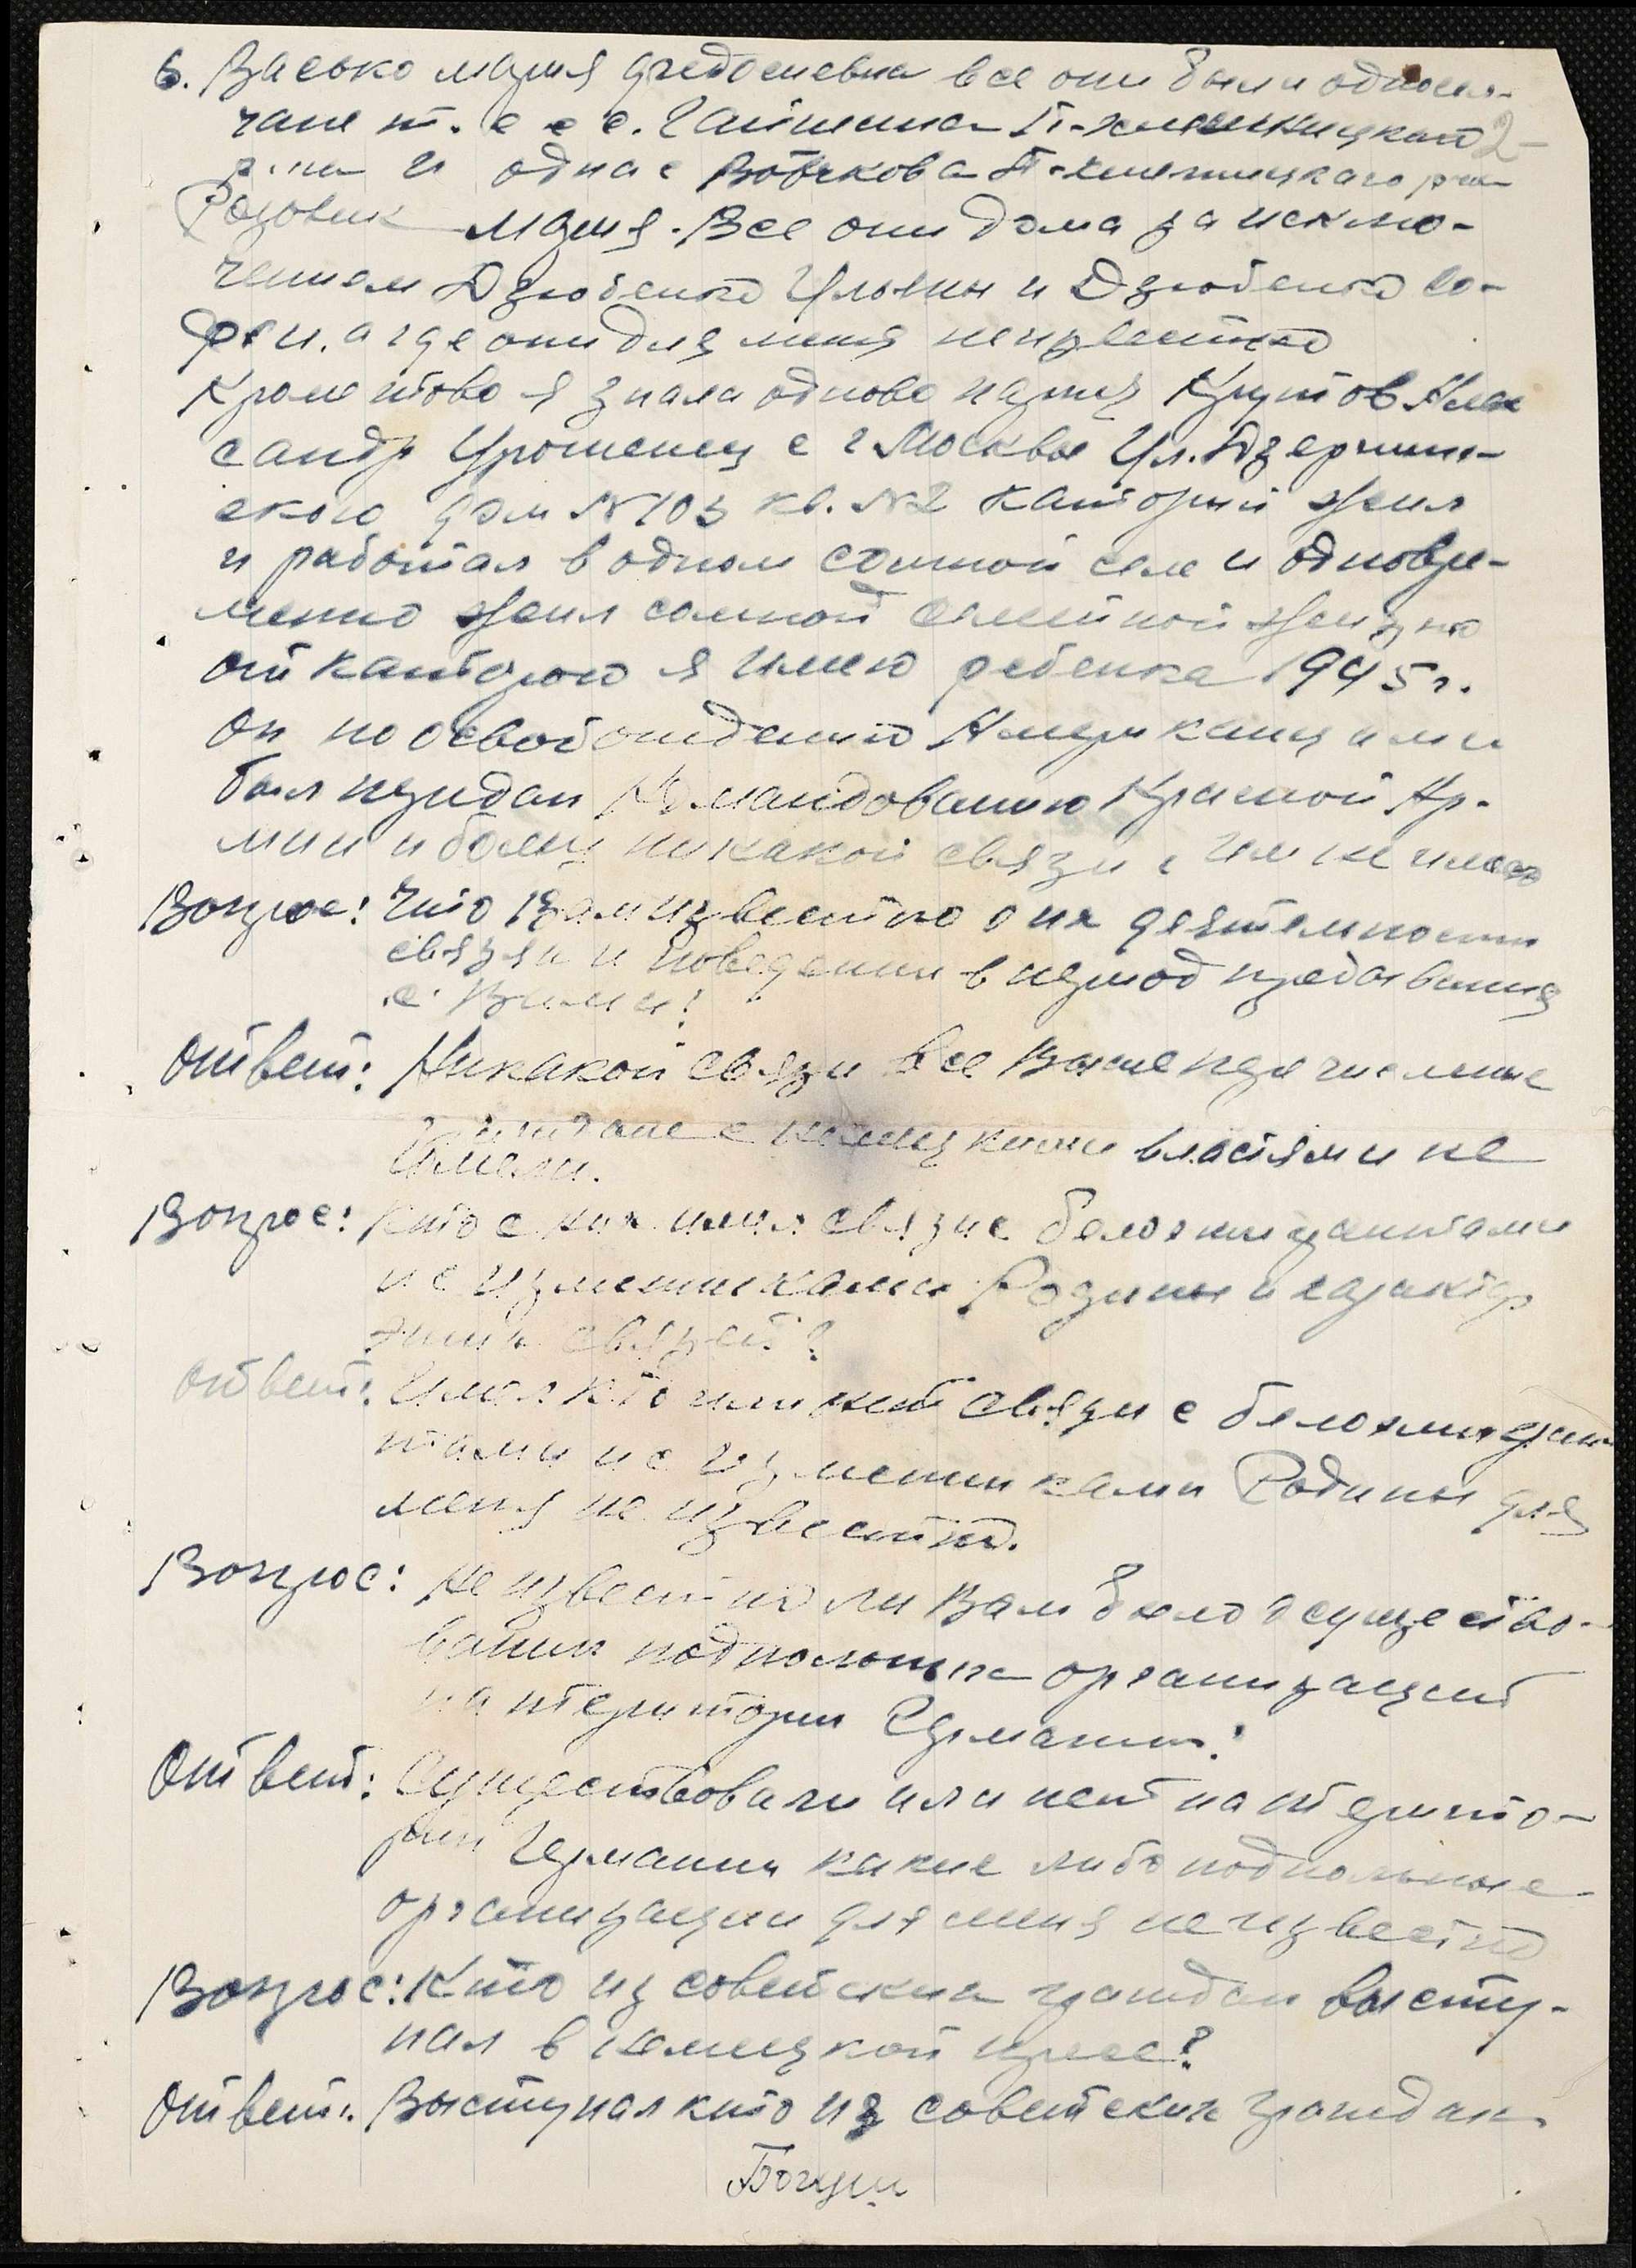 6. Васько Мария Федосиевна все они были односел-
чане т. е. с с. Гайшина П-Хмельницкого
р-на и одна с Вовчкова П-Хмельницкаго р-на
Розовик Мария. Все они дома за исклю-
чением Дзюбенко Ульяны и Дзюбенко Со-
феи, а где они для меня неизвестно
Кроме тово я знала одново парня Крутов Алек
сандр уроженец с г Москвы Ул. Дзержин-
ского дом № 103 кв. № 2 каторый жил
и работал в одном сомной селе и одновре-
менно жил сомной семейной жизню
от каторого я имею ребенка 1945 г.
Он по освобождению Американцами
был передан Командованию Красной Ар-
мии и болец никакой связи с им не имею
Вопрос: Что Вам известно о их деятельности
связях и поведении в период пребывания
с Вами?
Ответ: Никакой связи все выше перечисленые
граждане с немецкими властями не
имели.
Вопрос: Кто с них имел связи с белоэмигрантами
и с изменниками Родины и характер
этих связей?
Ответ: Имел кто или нет связи с белоэмигран
тами и с изменниками Родины для
меня не известно.
Вопрос: Не известно ли Вам было о существо-
вании подпольных организаций
на територии Германии?
Ответ: Существовали или нет на терито-
рии Германии какие либо подпольные
организации для меня не известно
Вопрос: Кто из советских граждан высту-
пал в немецкой пресе?
Ответ: Выступал кто из советских граждан
Богуш